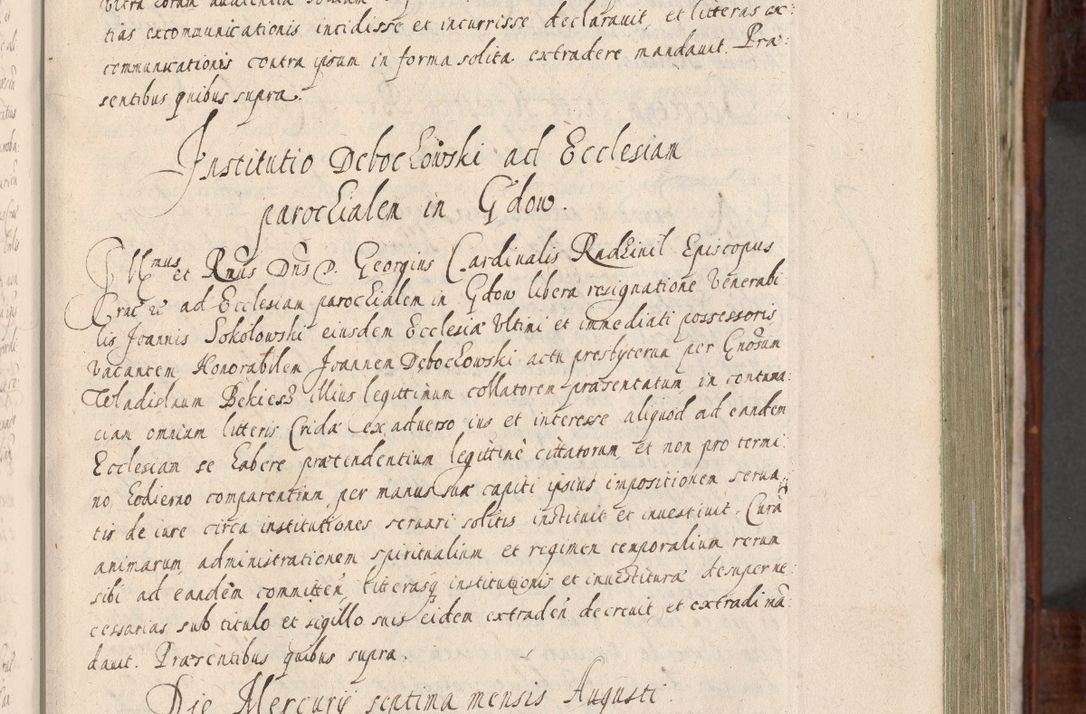 tias excommunicationis incidisse et incurrisse declarauit, et litteras ex:
communicationis contra ipsum in forma solita extradere mandauit. Præ:
sentibus quibus supra.
Institutio Debochowski ad Ecclesiam
parochialem in Gdow.
Illmus et Rndus Dns D. Georgius Cardinalis Radziuil Episcopus
Crac etc ad Ecclesiam parochialem in Gdow libera resignatione Venerabi:
lis Joannis Sokolowski eiusdem Ecclesiæ Vltimi et immediati possessoris
vacantem Honorabilem Joannem Debochowski actu presbyterum per Gnosum
Wladislaum Bekiesz illius legittimum collatorem præsentatum in contuma:
ciam omnium litteris Cridæ ex aduerso ius et interesse aliquod ad eandem
Ecclesiam se habere prætendentium legittime cittatorum, et non pro termi:
no hodierno comparentium per manus suæ capiti ipsius impositionem serua:
tis de iure circa institutiones seruari solitis instituit et inuestiuit. Curã
animarum, administrationem spiritualium et regimen temporalium rerum
sibi ad eandem committen̄, litterasq institutionis et inuestituræ desuper ne:
cessarias sub titulo et sigillo suis eidem extraden̄ decreuit, et extradi mã:
dauit. Præsentibus quibus supra.
Die Mercurij septima mensis Augusti